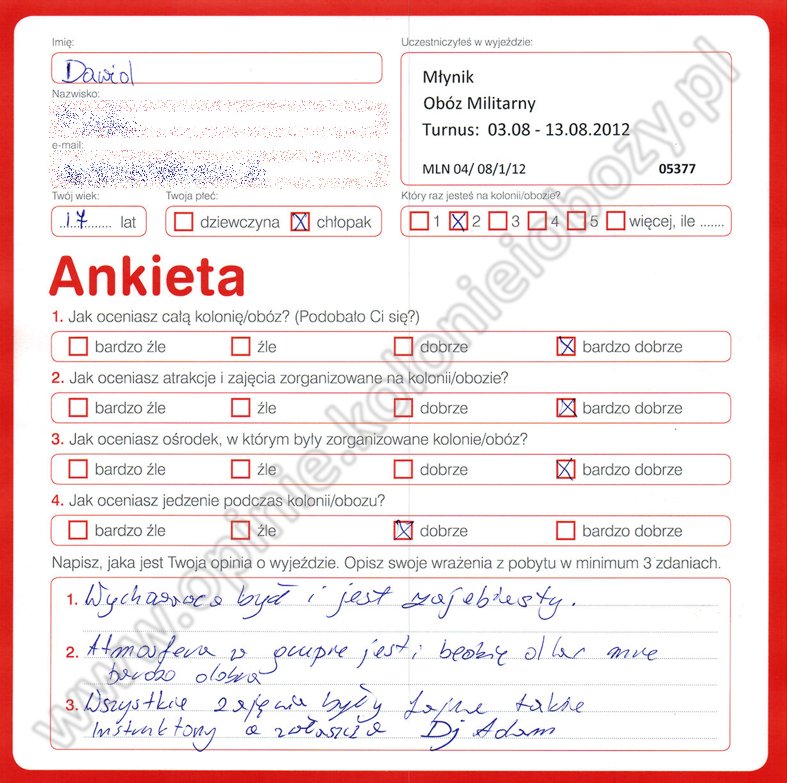 Imię:
Dawid
Nazwisko:
e-mail:
Twój wiek:
17 lat
Twoja płeć:
dziewczyna chłopak
Uczestniczyłeś w wyjeździe:
Młynik
Obóz Militarny
Turnus: 03.08 - 13.08.2012
MLN 04/ 08/1/12 05377
Który raz jesteś na kolonii/obozie?
1 2 3 4 5 więcej, ile .......
Ankieta
1. Jak oceniasz całą kolonię/obóz? (Podobało Ci się?)
bardzo źle źle dobrze bardzo dobrze
2. Jak oceniasz atrakcje i zajęcia zorganizowane na kolonii/obozie?
bardzo źle źle dobrze bardzo dobrze
3. Jak oceniasz ośrodek, w którym były zorganizowane kolonie/obóz?
bardzo źle źle dobrze bardzo dobrze
4. Jak oceniasz jedzenie podczas kolonii/obozu?
bardzo źle źle dobrze bardzo dobrze
Napisz, jaka jest Twoja opinia o wyjeździe. Opisz swoje wrażenia z pobytu w minimum 3 zdaniach.
1. był i jest zajebisty.
2. Atmosfera w grupie jest i będzie dla mnie
bardzo dobra
3. Wszystkie zajęcia były fajne także
instruktorzy a Dj Adam
www.opinie.kolonieiobozy.pl